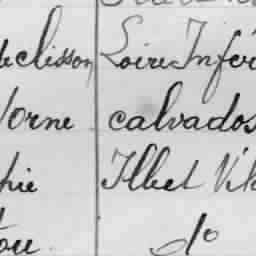 de clisson Loire Infér
l'orne calvados
phie Illet Vil
tou. do